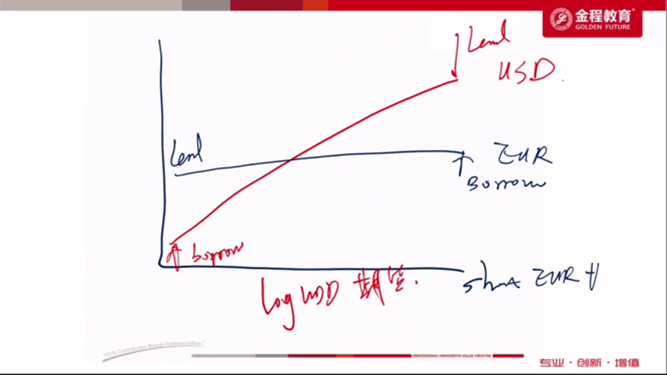 金程教育
GOLDEN FUTURE
Lend
USD
Lend
EUR
Borrow
↑ borrow
Long USD 期货.
short EUR
100% Contribution Breeds Professionalism!
专业·创新·增值